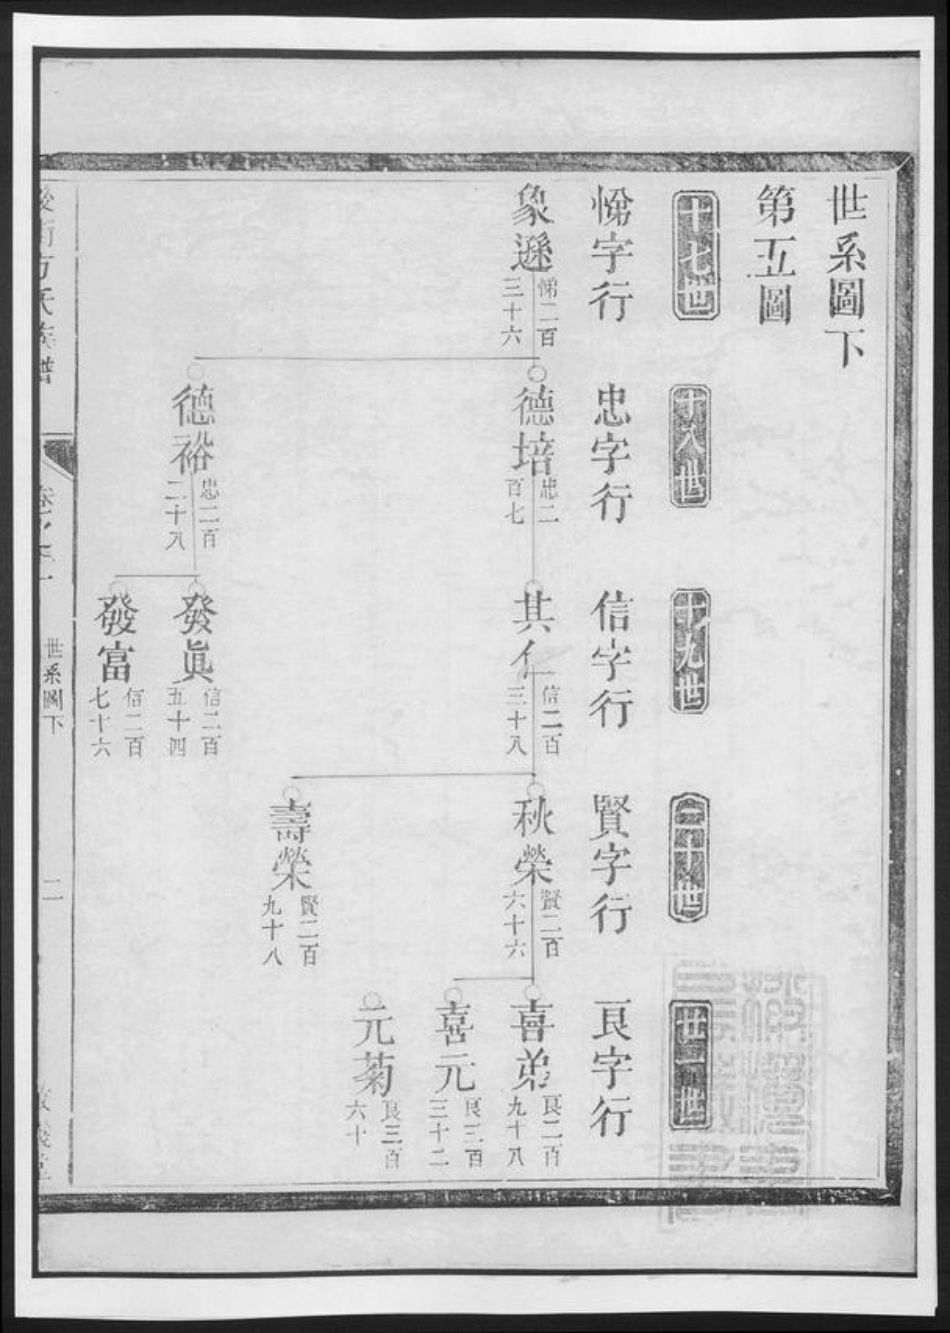 世系圖下
第五圖
十七世
十八世
十九世
二十世
廿一世
悌字行
忠字行
信字行
賢字行
良字行
象遜
悌二百
三十六
德培
忠二
百七
其仁
信二百
三十八
秋榮
賢二百
六十六
喜弟
良二百
九十八
喜元
良三百
三十二
元菊
良三百
六十
壽榮
賢二百
九十八
德裕
忠二百
二十八
發眞
信二百
五十四
發富
信二百
七十六
世系圖下
二